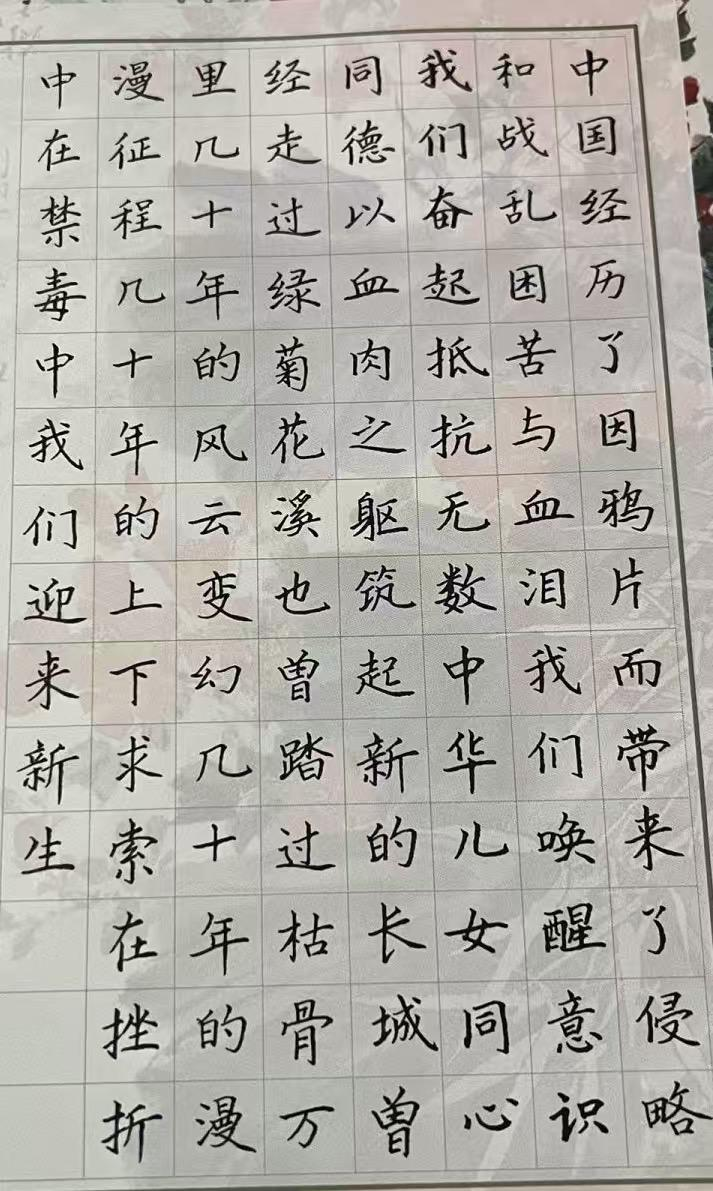 中国经历了因鸦片而带来了侵略
和战乱困苦与血泪我们唤醒意识
我们奋起抵抗无数中华儿女同心
同德以血肉之躯筑起新的长城曾
经走过绿菊花溪也曾踏过枯骨万
里几十年的风云变幻几十年的漫
漫征程几十年的上下求索在挫折
中在禁毒中我们迎来新生